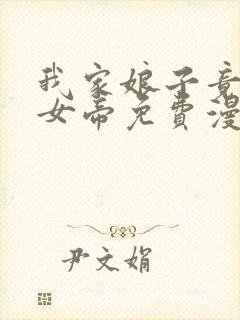 我家娘子竟
女帝免费漫
尹文娟